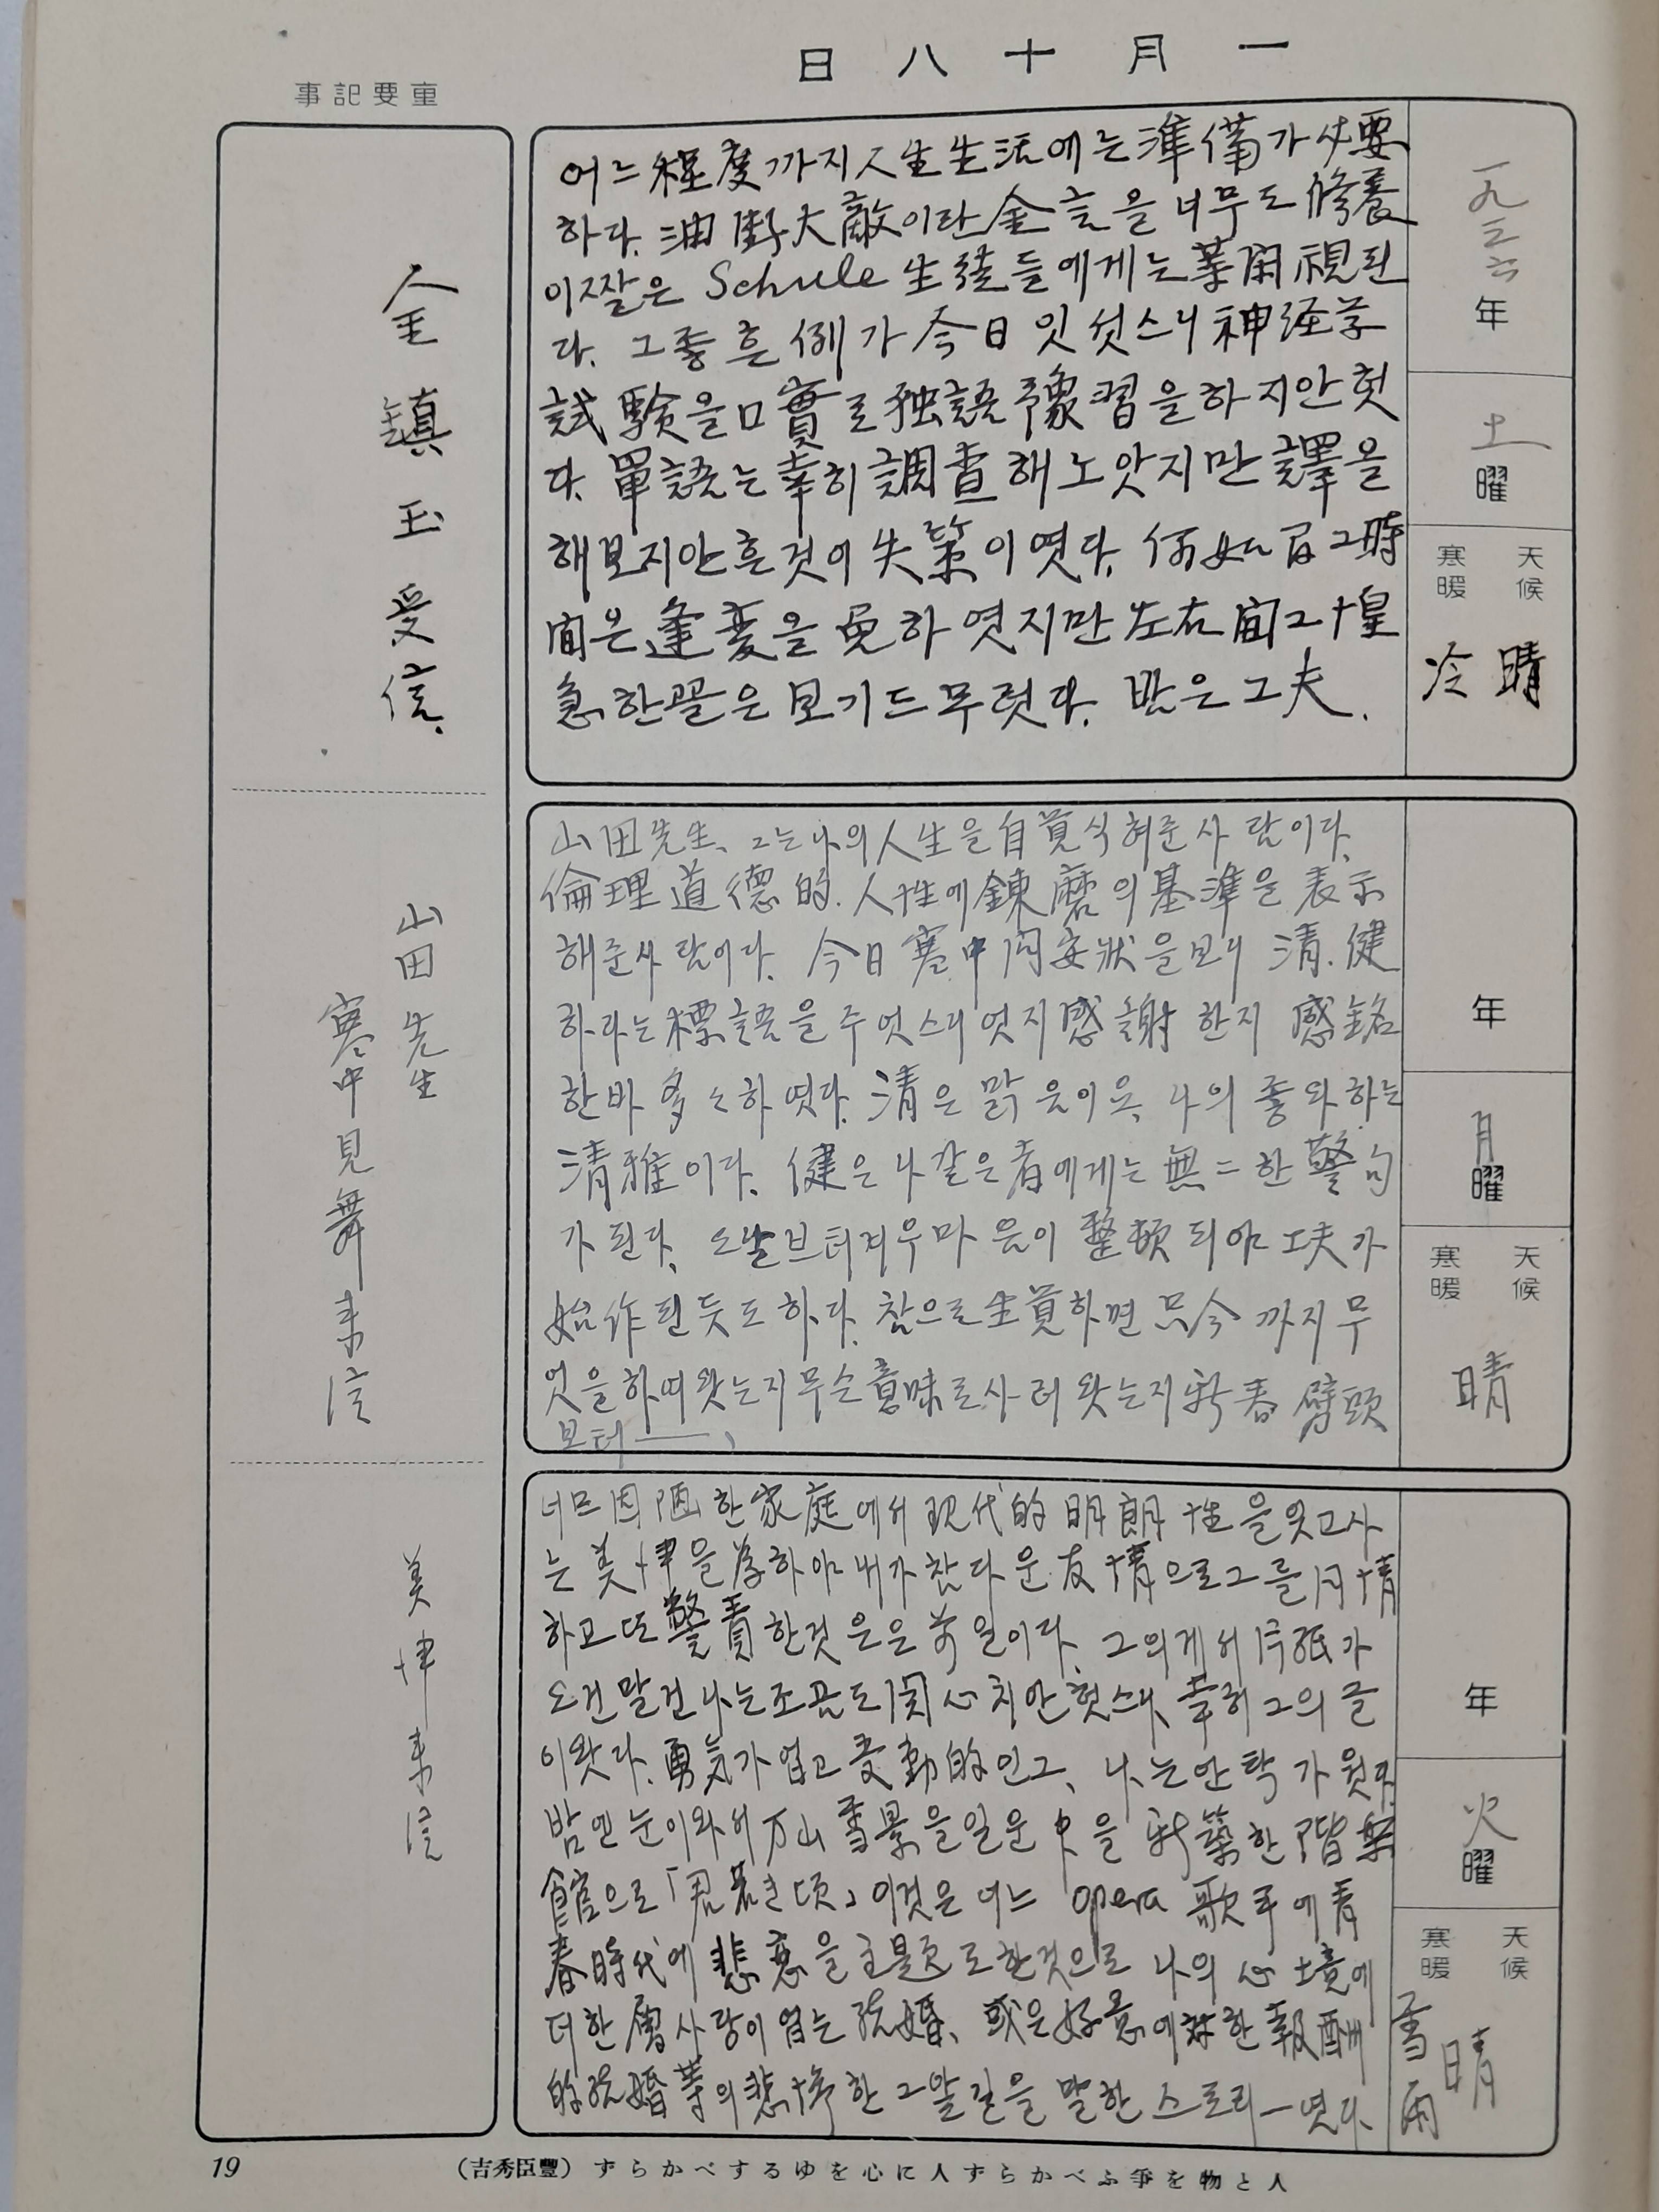 一月十八日
重要記事
어느 程度까지 人生生活에는 準備가 必要
하다. 油断大敵이란 金言을 너무도 修養
이 짧은 Schule 生徒들에게는 等閑視된
다. 그 좋흔 例가 今日 잇섯스니 神経学
試験을 口實로 独語 予習을 하지안헛
다. 單語는 幸히 調査해노앗지만 譯을
해보지안흔것이 失策이엿다. 何如間 그 時
間은 逢変을 免하엿지만 左右間 그 惶
急한 꼴은 보기드무럿다. 밤은 工夫.
一九三六年
土曜
天候
寒暖
晴
冷
金鎮玉受信.
山田先生、그는 나의 人生을 自覚식혀준 사람이다.
倫理道德的. 人性에 錬磨의 基準을 表示
해준 사람이다. 今日 寒中問安狀을 보니 清. 健
하라는 標語을 주엇스니 엇지 感謝한지 感銘
한바 多々하엿다. 清은 맑음이오, 나의 좋와하는
清雅이다. 健은 나같은 者에게는 無二한 警句
가 된다. 오날브터 겨우 마음이 整頓되야 工夫가
始作된듯도하다. 참으로 生覚하면 只今까지 무
엇을하여왓는지 무슨 意味로 사러왓는지 新春劈頭
브터——,
年
月曜
天候
寒暖
晴
山田先生
寒中見舞来信
너므 固陋한 家庭에서 現代的 明朗性을 잇고사
는 美津을 為하야 내가 참다운 友情으로 그를 同情
하고 또 警責한것은 前일이다. 그의게서 片紙가
오건말건 나는 조곰도 関心치안헛스나, 幸히 그의 글
이왓다. 勇気가 업고 受動的인 그, 나는 안탁가웟다.
밤엔 눈이와서 万山雪景을 일운 中을 新築한 階樂
館으로 「君若き頃」 이것은 어느 opera 歌手에 青
春時代에 悲恋을 主題로한것으로 나의 心境에
더한 層 사랑이 업는 結婚、或은 好意에 対한 報酬
的 結婚等의 悲惨한 그 말길을 말한 스토리—엿다.
年
火曜
天候
寒暖
晴
雪雨
美津来信
19
人と物を爭ふべからず人に心をゆるすべからず（豐臣秀吉）